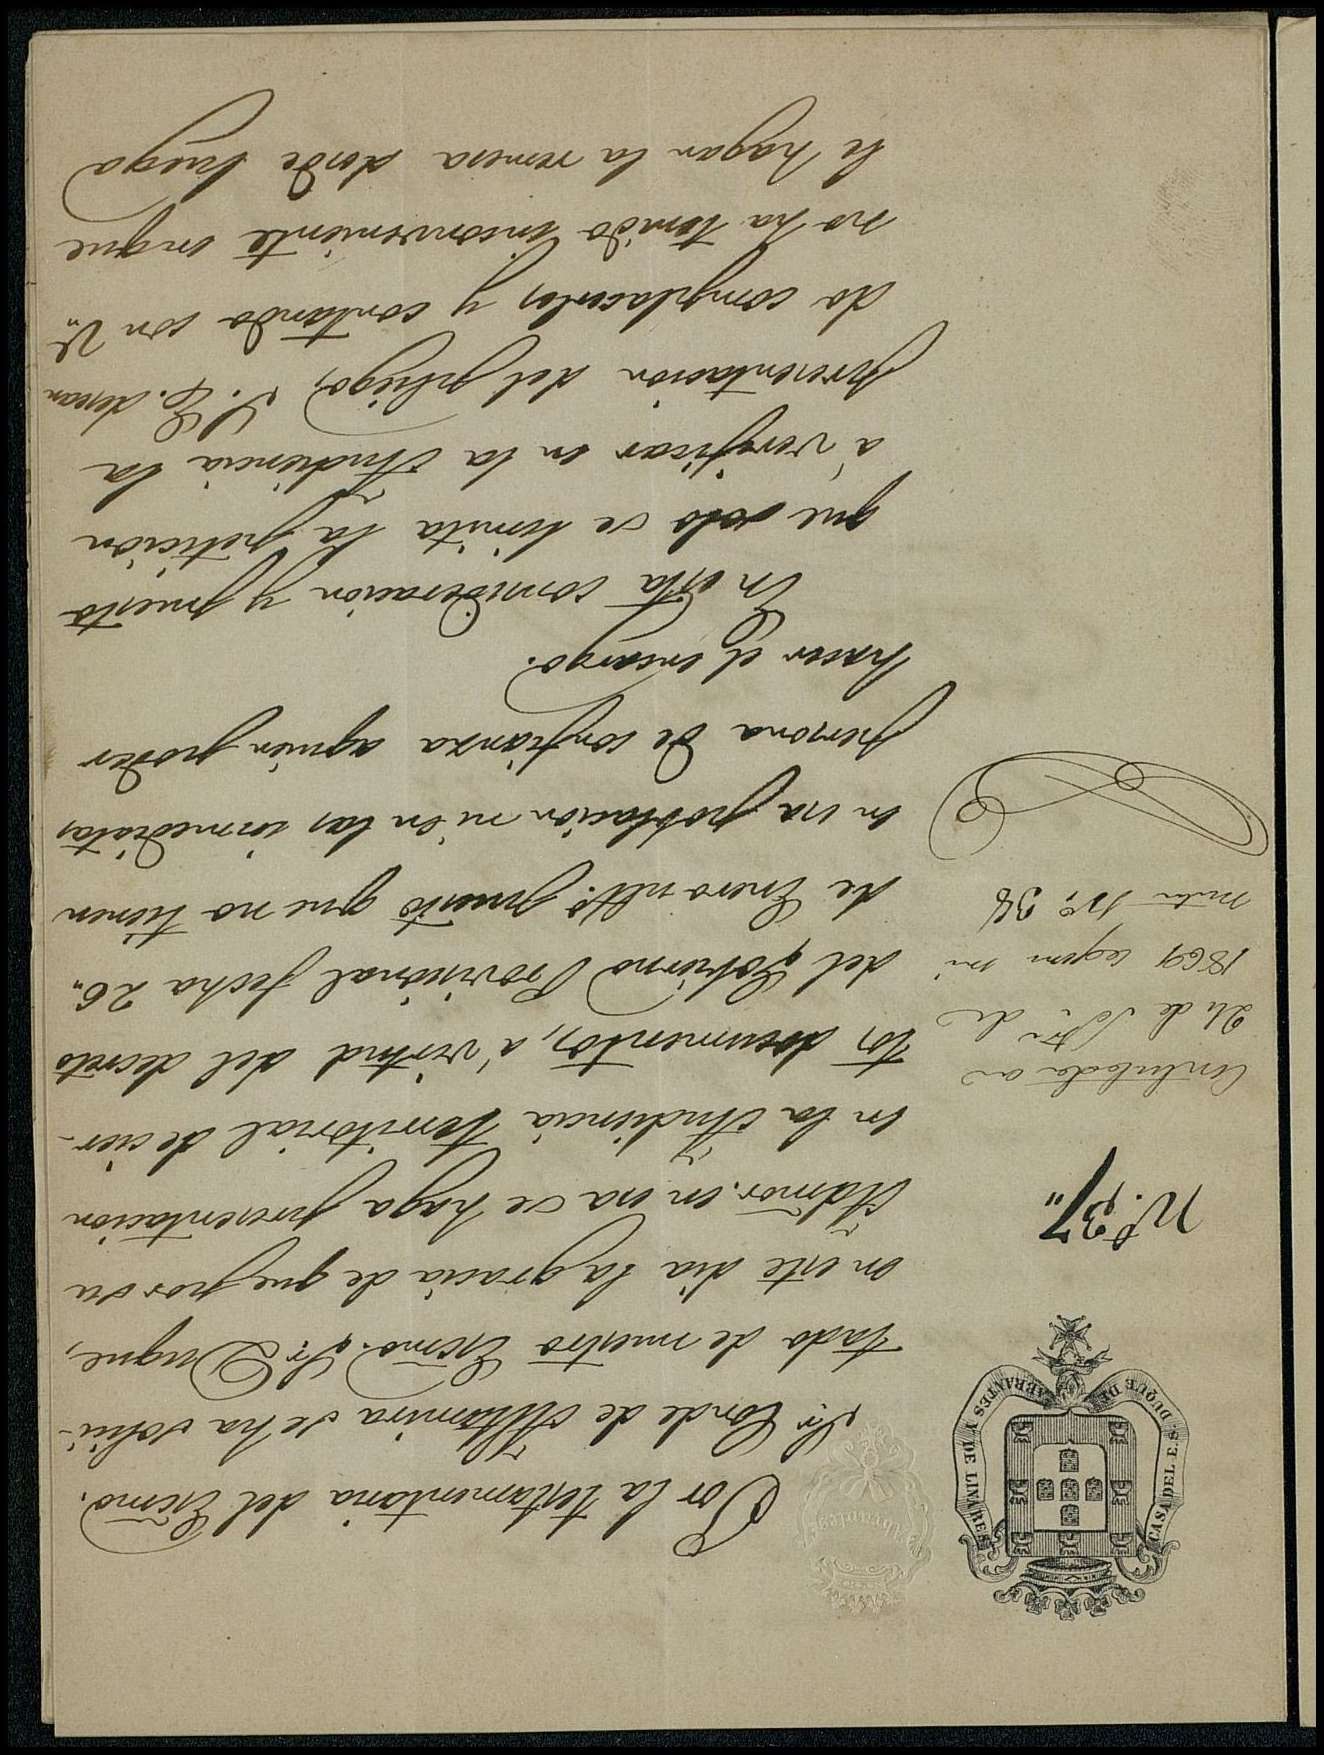 CASA DEL E.S. DUQUE DE ABRANTES Y DE LINARES
Nº. 37„
Contestada en
24 de Stre de
1869 segun mi
nuta Nº. 34
Por la testamentaria del Excmo.
Sr. Conde de Altamira se ha solici-
tado de nuestro Excmo. Sr. Duque,
en este dia la gracia de que por su
Admor. en esa se haga presentacion
en la Audiencia territorial de cier-
tos documentos, á virtud del decreto
del Gobierno Provisional fecha 26„
de Enero ultº. puesto que no tienen
en esa poblacion ni en las inmediatas
persona de confianza aquien poder
hacer el encargo.
En esta consideracion y puesto
que solo se limita la peticion
á verificar en la Audiencia la
presentacion del pliego, S. E. desean
do complacerles y contando con V.
no ha tenido inconveniente enque
le hagan la remesa desde luego